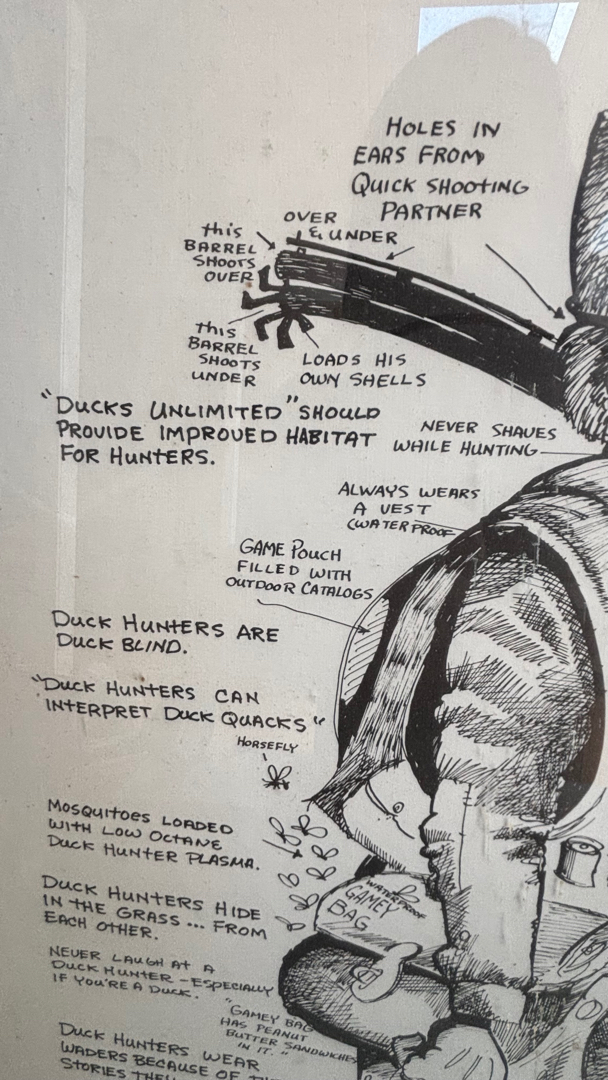 HOLES IN
EARS FROM
QUICK SHOOTING
PARTNER
OVER
& UNDER
this
BARREL
SHOOTS
OVER
this
BARREL
SHOOTS
UNDER
LOADS HIS
OWN SHELLS
"DUCKS UNLIMITED" SHOULD
PROVIDE IMPROVED HABITAT
FOR HUNTERS.
NEVER SHAVES
WHILE HUNTING
ALWAYS WEARS
A VEST
(WATERPROOF
GAME POUCH
FILLED WITH
OUTDOOR CATALOGS
DUCK HUNTERS ARE
DUCK BLIND.
"DUCK HUNTERS CAN
INTERPRET DUCK QUACKS"
HORSEFLY
MOSQUITOES LOADED
WITH LOW OCTANE
DUCK HUNTER PLASMA.
DUCK HUNTERS HIDE
IN THE GRASS ... FROM
EACH OTHER.
WATERPROOF
GAMEY
BAG
NEVER LAUGH AT A
DUCK HUNTER - ESPECIALLY
IF YOU'RE A DUCK.
"GAMEY BAG
HAS PEANUT
BUTTER SANDWICHES
IN IT."
DUCK HUNTERS WEAR
WADERS BECAUSE OF
STORIES